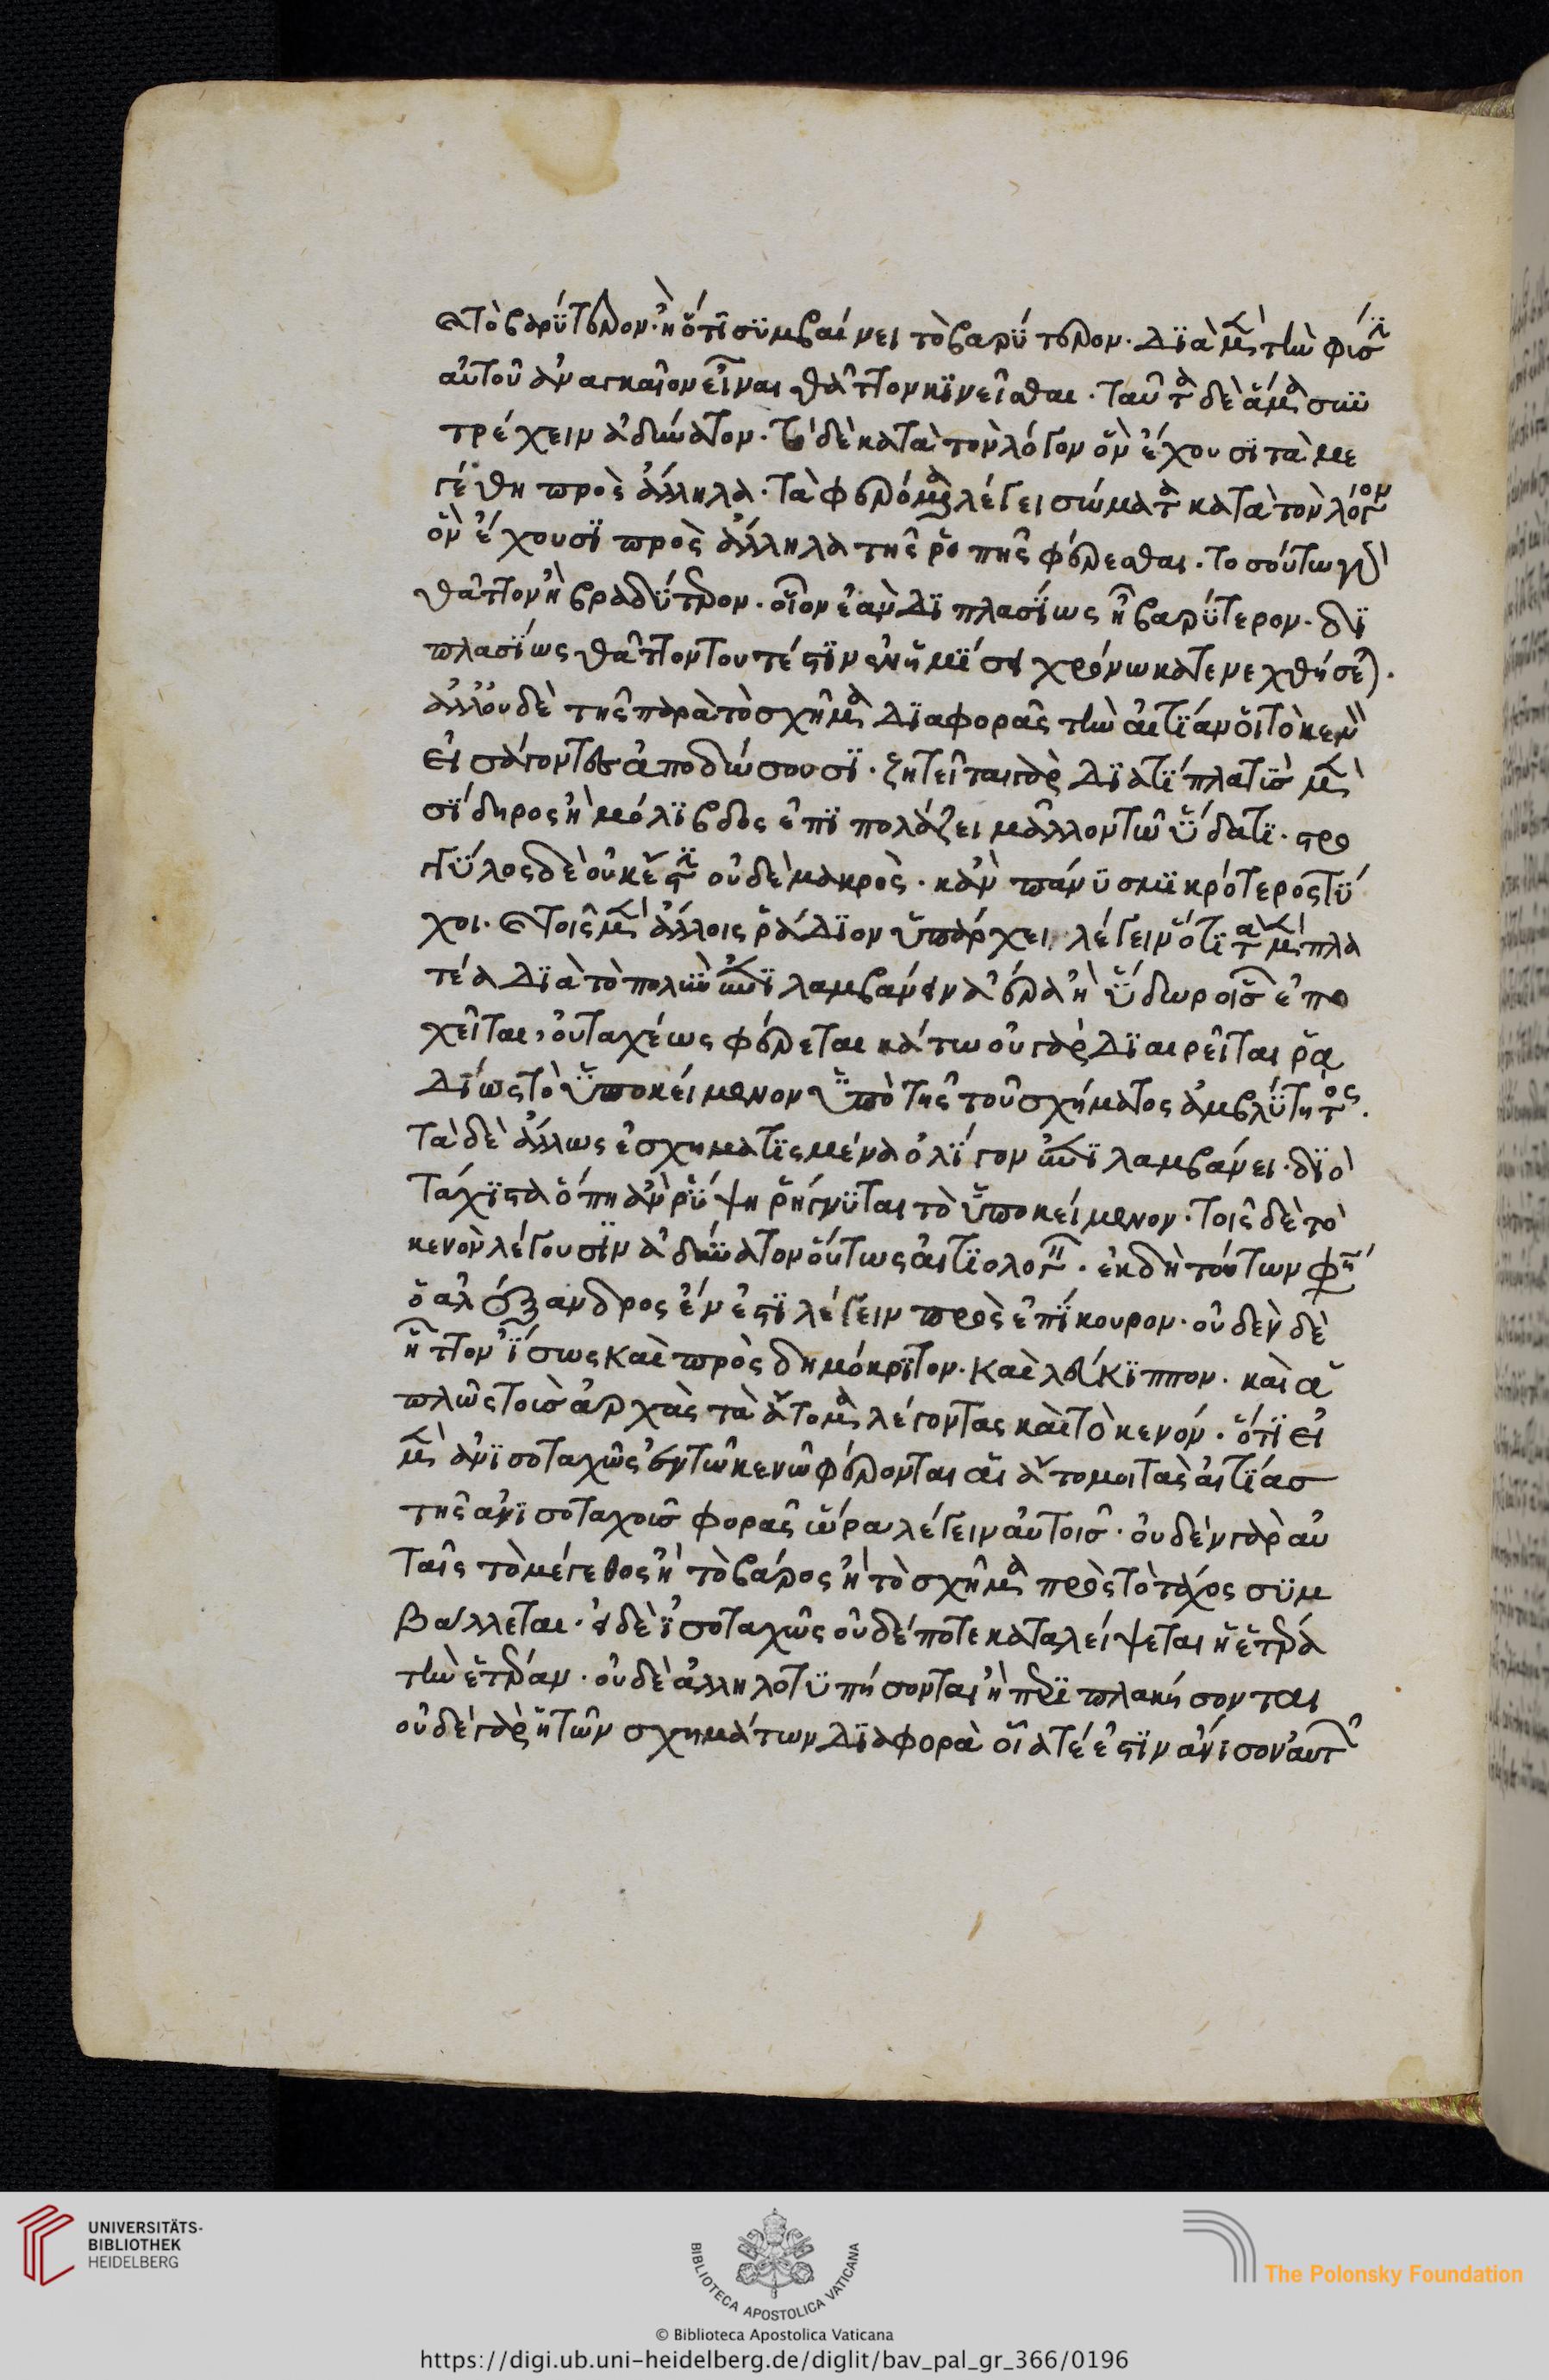 καὶ τὸ βαρύτερον. ἢ ὅτι συμβαίνει τὸ βαρύτερον. διὰ μὲν τὴν φύσιν
αὐτοῦ ἀναγκαῖον εἶναι θᾶττον κινεῖσθαι. ταῦτα δὲ ἅμα συν
τρέχειν ἀδύνατον. τὸ δὲ κατὰ τὸν λόγον ὃν ἔχουσι τὰ με
γέθη πρὸς ἄλληλα. τὰ φερόμενα λέγει σώματα κατὰ τὸν λόγον
ὃν ἔχουσι πρὸς ἄλληλα τῆς ῥοπῆς φέρεσθαι. τοσούτω γὰρ
θᾶττον ἢ βραδύτερον. οἷον ἐὰν διπλασίως ἢ βαρύτερον. δι
πλασίως θᾶττον τουτέστιν ἐν ἡμίσει χρόνω κατενεχθήσεται.
ἀλλ' οὐδὲ τῆς παρὰ τὸ σχῆμα διαφορᾶς τὴν αἰτίαν οἱ τὸ κενὸν
εἰσάγοντες ἀποδώσουσι. ζητεῖται γὰρ διατί πλατὺς μὲν
σίδηρος ἢ μόλιβδος ἐπιπολάζει μᾶλλον τῶ ὕδατι. στρο
γγύλος δὲ οὐκέτι οὐδὲ μακρὸς. κἂν πάνυ σμικρότερος τύ
χοι. καὶ τοῖς μὲν ἄλλοις ῥάδιον ὑπάρχει λέγειν ὅτι τὰ μὲν πλα
τέα διὰ τὸ πολὺν λαμβάνειν ἀέρα ἢ ὕδωρ οἷς ἐπο
χεῖται, οὐ ταχέως φέρεται κάτω οὐ γὰρ διαιρεῖται ῥα
δίως τὸ ὑποκείμενον ὑπὸ τῆς τοῦ σχήματος ἀμβλύτητος.
τὰ δὲ ἄλλως ἐσχηματισμένα ὀλίγον λαμβάνει. διὸ
τάχιστα ὅπη ἂν ῥύψη ῥήγνυται τὸ ὑποκείμενον. τοῖς δὲ τὸ
κενὸν λέγουσιν ἀδύνατον οὕτως αἰτιολογεῖν. ἐκ δὴ τούτων φησὶν
ὁ ἀλέξανδρος ἔνεστι λέγειν πρὸς ἐπίκουρον. οὐδὲν δὲ
ἧττον ἴσως καὶ πρὸς δημόκριτον. καὶ λεύκιππον. καὶ ἁ
πλῶς τοὺς ἀρχὰς τὰ ἄτομα λέγοντας καὶ τὸ κενόν. ὅτι εἰ
μὲν ἀνισοταχῶς ἐν τῶ κενῶ φέρονται αἱ ἄτομοι τὰς αἰτίας
τῆς ἀνισοταχοῦς φορᾶς ὥρα λέγειν αὐτοῖς. οὐδὲν γὰρ αὐ
ταῖς τὸ μέγεθος ἢ τὸ βάρος ἢ τὸ σχῆμα πρὸς τὸ τάχος συμ
βάλλεται. εἰ δὲ ἰσοταχῶς οὐδέποτε καταλείψεται ἡ ἑτέρα
τὴν ἑτέραν. οὐδὲ ἀλληλοτυπήσονται ἢ περιπλακήσονται
οὐδὲ γὰρ ἡ τῶν σχημάτων διαφορὰ οἵα τέ ἐστιν ἄνισον αὐτῶν
UNIVERSITÄTS-
BIBLIOTHEK
HEIDELBERG
BIBLIOTECA APOSTOLICA VATICANA
The Polonsky Foundation
© Biblioteca Apostolica Vaticana
https://digi.ub.uni-heidelberg.de/diglit/bav_pal_gr_366/0196